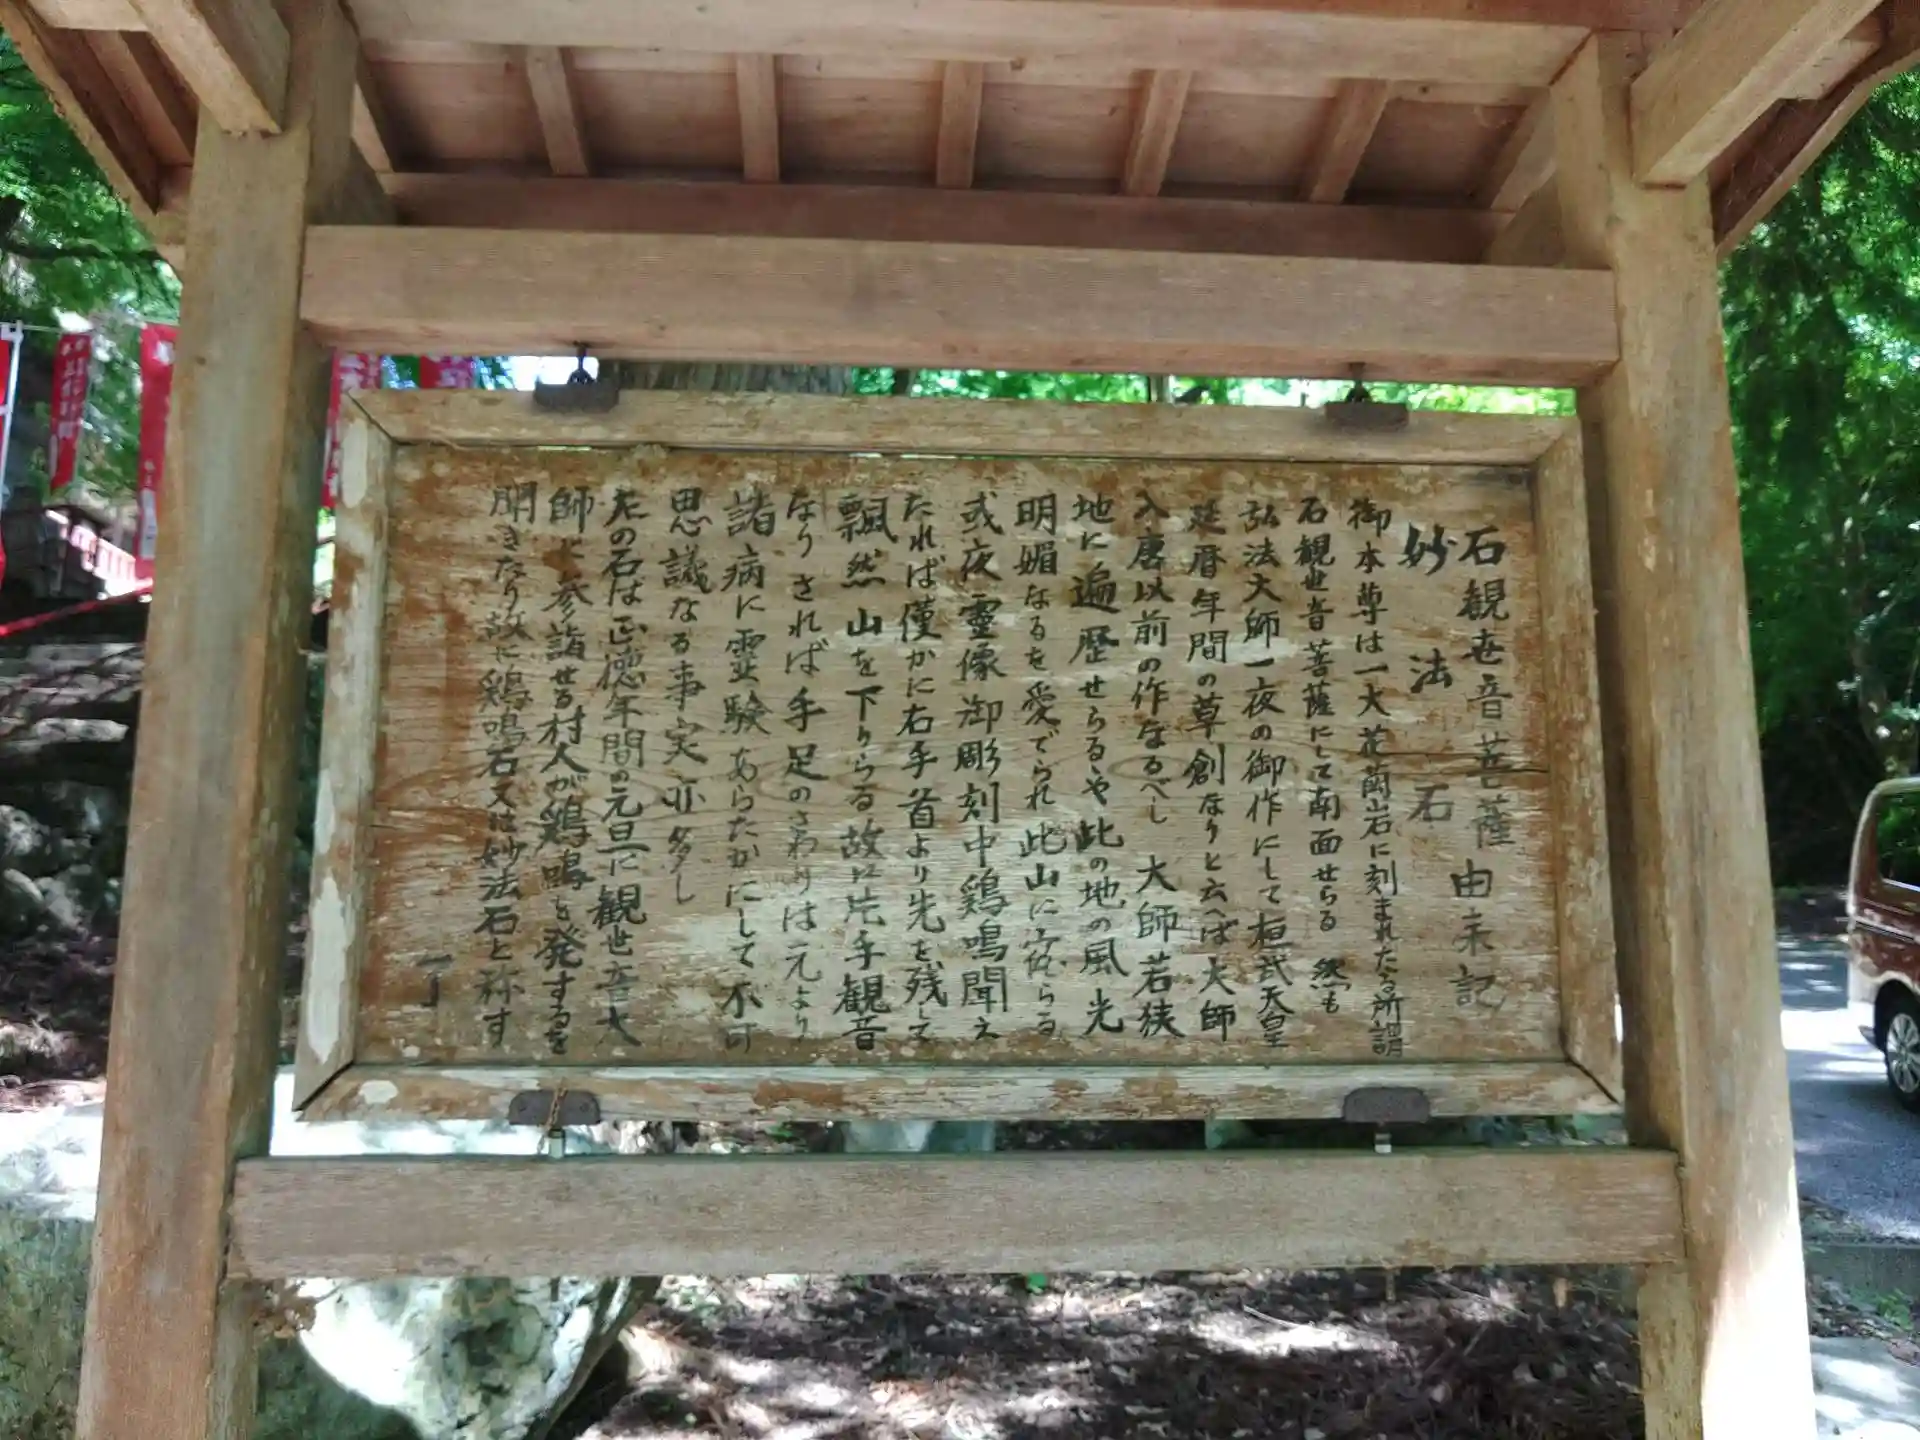 石観世音菩薩由来記
妙法石
御本尊は一大花崗岩に刻まれたる所謂
石観世音菩薩にして南面せらる 然も
弘法大師一夜の御作にして桓武天皇
延暦年間の草創なりと云へば大師
入唐以前の作なるべし 大師若狭
地に遍歴せらるゝや此の地の風光
明媚なるを愛でられ此山に宿らる
或夜霊像御彫刻中鶏鳴聞え
たれば僅かに右手首より先を残して
飄然山を下りらる故に片手観音
なりされば手足のさわりは元より
諸病に霊験あらたかにして不可
思議なる事実亦多し
左の石は正徳年間の元旦に観世音大
師に参詣せる村人が鶏鳴を発するを
聞きたり故に鶏鳴石又は妙法石と称す